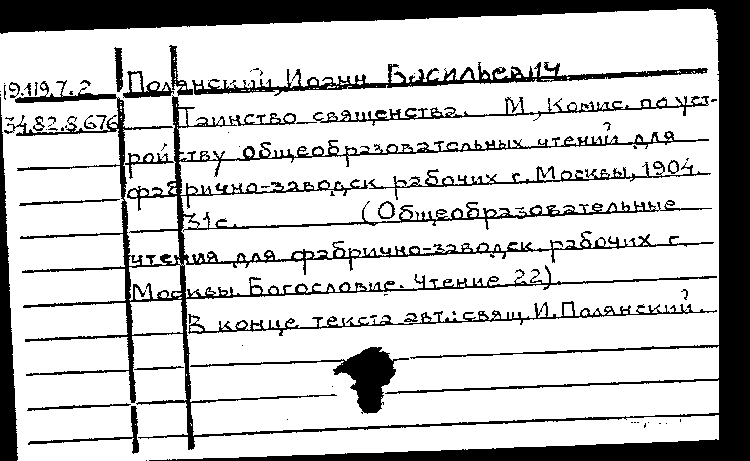 19.119.7.2 Полянский, Иоанн Васильевич
34.82.8.676 Таинство священства. М., Комис. по уст-
ройству общеобразовательных чтений для
фабрично-заводск. рабочих г. Москвы, 1904.
31с. (Общеобразовательные
чтения для фабрично-заводск. рабочих г.
Москвы. Богословие. Чтение 22).
В конце текста авт.: свящ. И. Полянский.